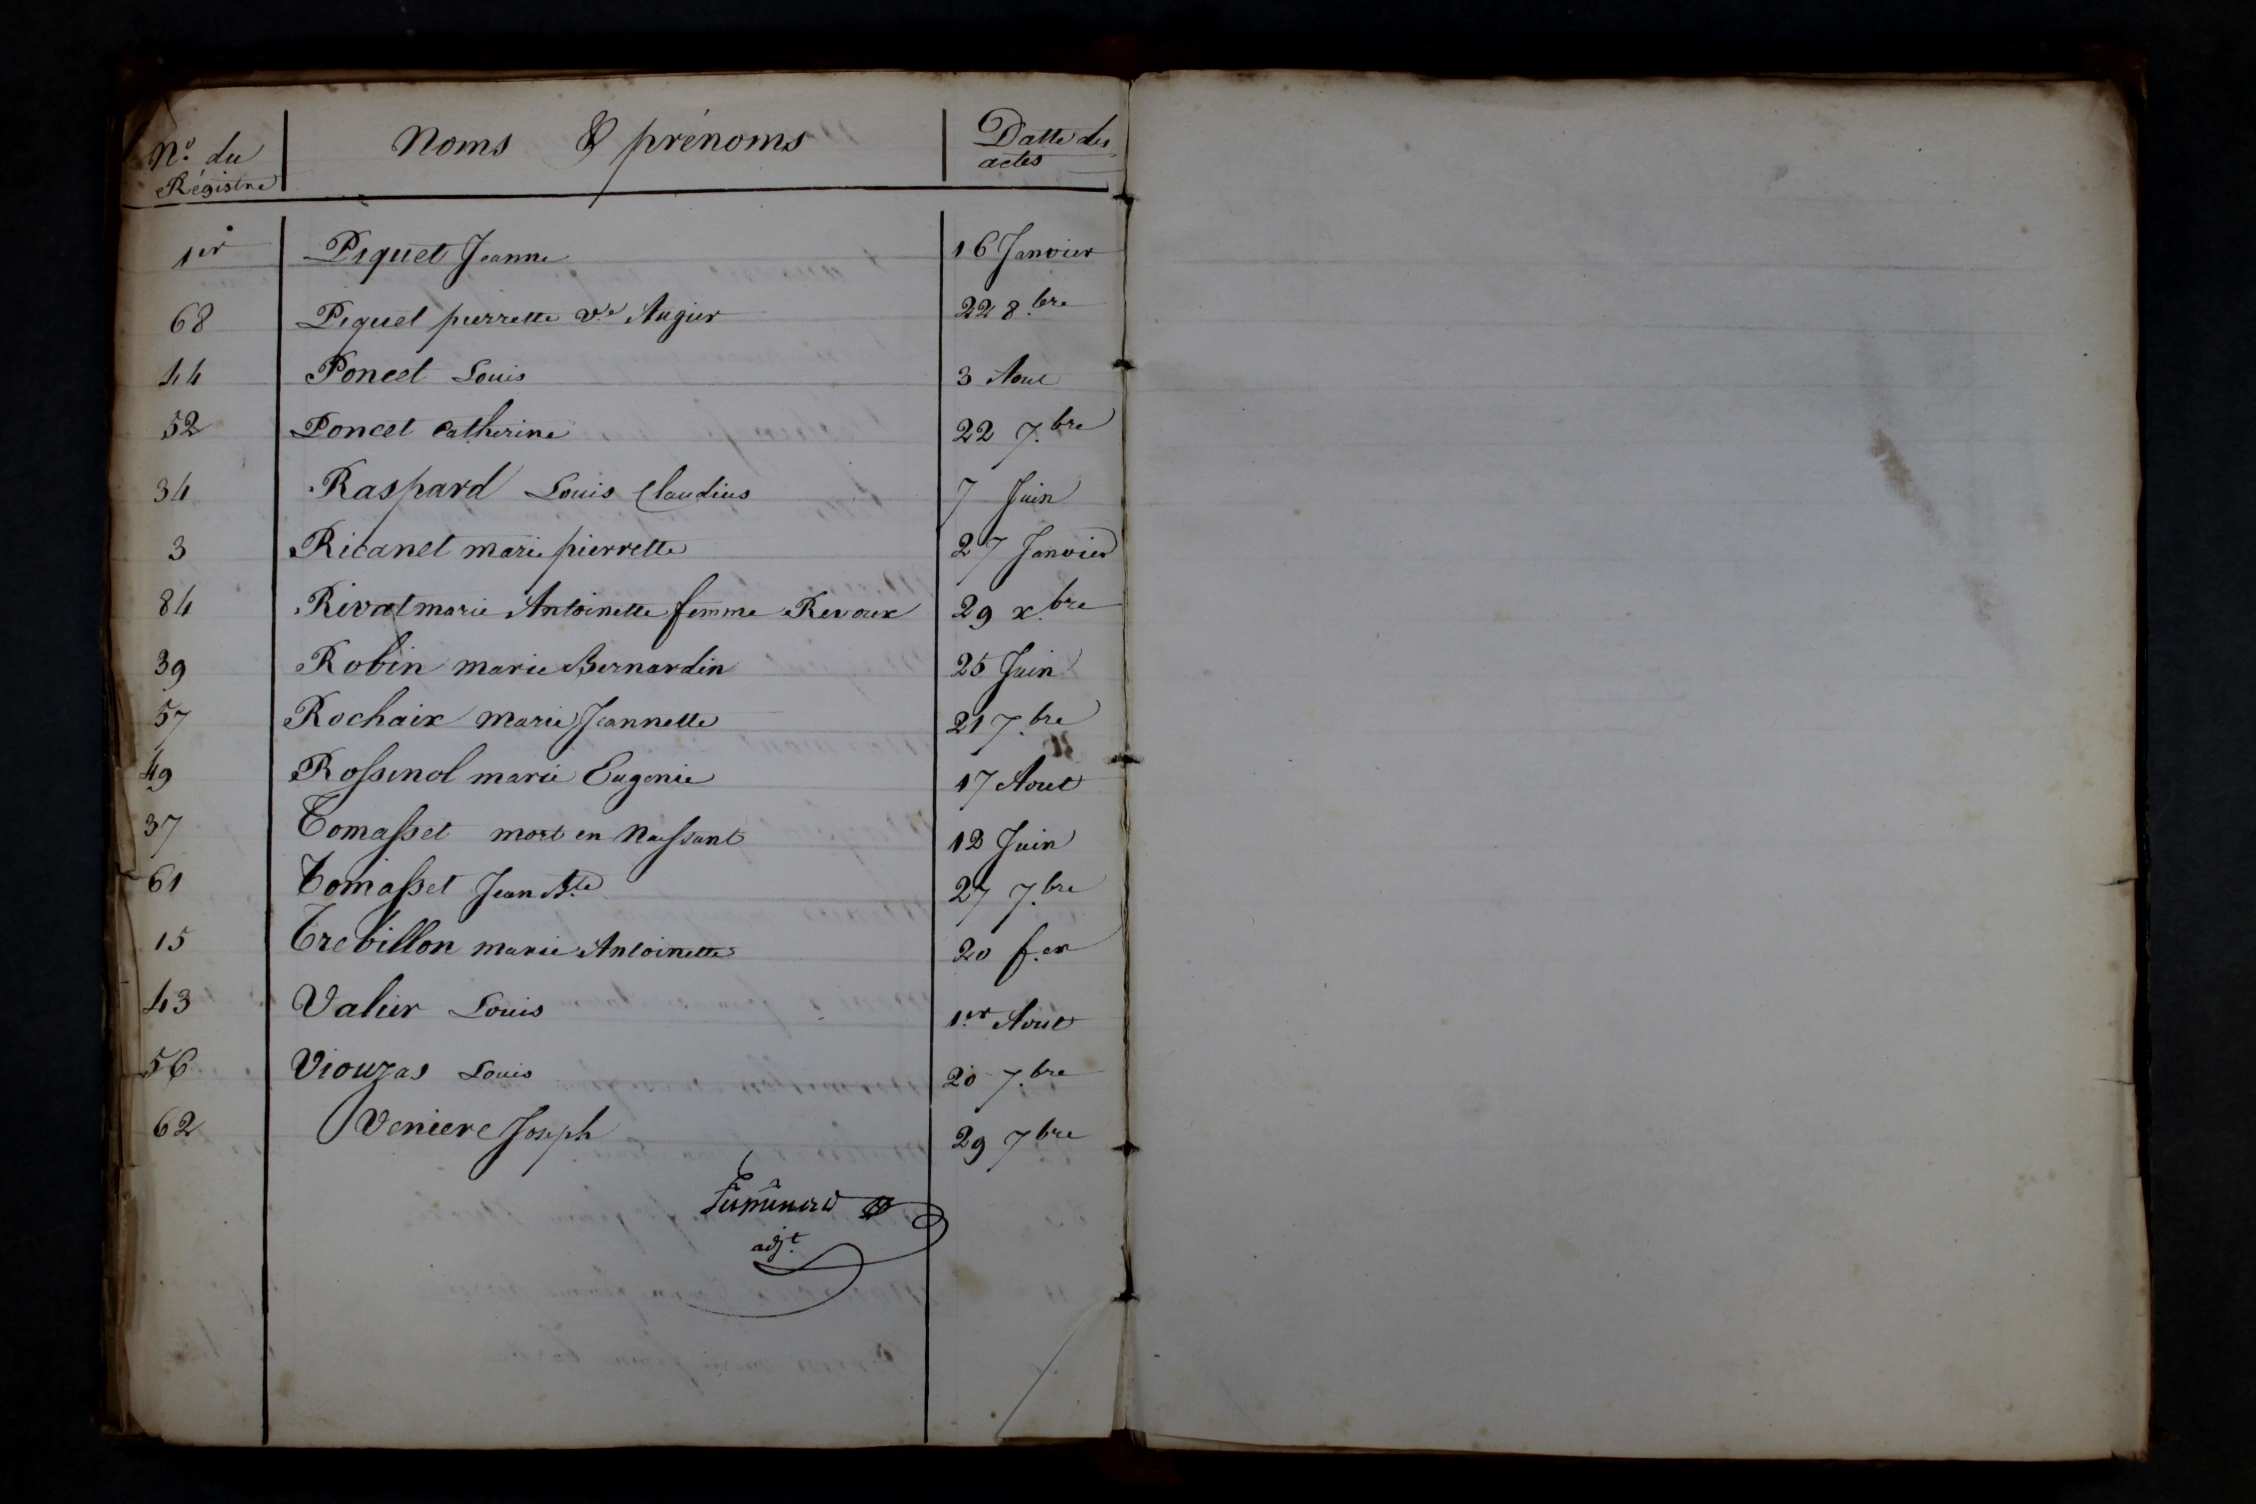 N.º du Régistre
Noms & prénoms
Datte des actes
1er Piquet Jeanne 16 Janvier
68 Piquet pierrette Ve Augier 22 8.bre
44 Poncet Louis 3 Aout
52 Poncet Catherine 22 7.bre
34 Raspard Louis Claudius 7 Juin
3 Ricanet marie pierrette 27 Janvier
84 Rivat marie Antoinette femme Revoux 29 x.bre
39 Robin marie Bernardin 25 Juin
57 Rochaix marie Jeannette 21 7.bre
49 Rossinol marie Eugenie 17 Aout
37 Tomasset mort en Naissant 12 Juin
61 Tomasset Jean Bte 27 7.bre
15 Trebillon marie Antoinette 20 f.er
43 Valier Louis 1.er Aout
56 Viouzas Louis 20 7.bre
62 Veniere Joseph 29 7bre
adj.t